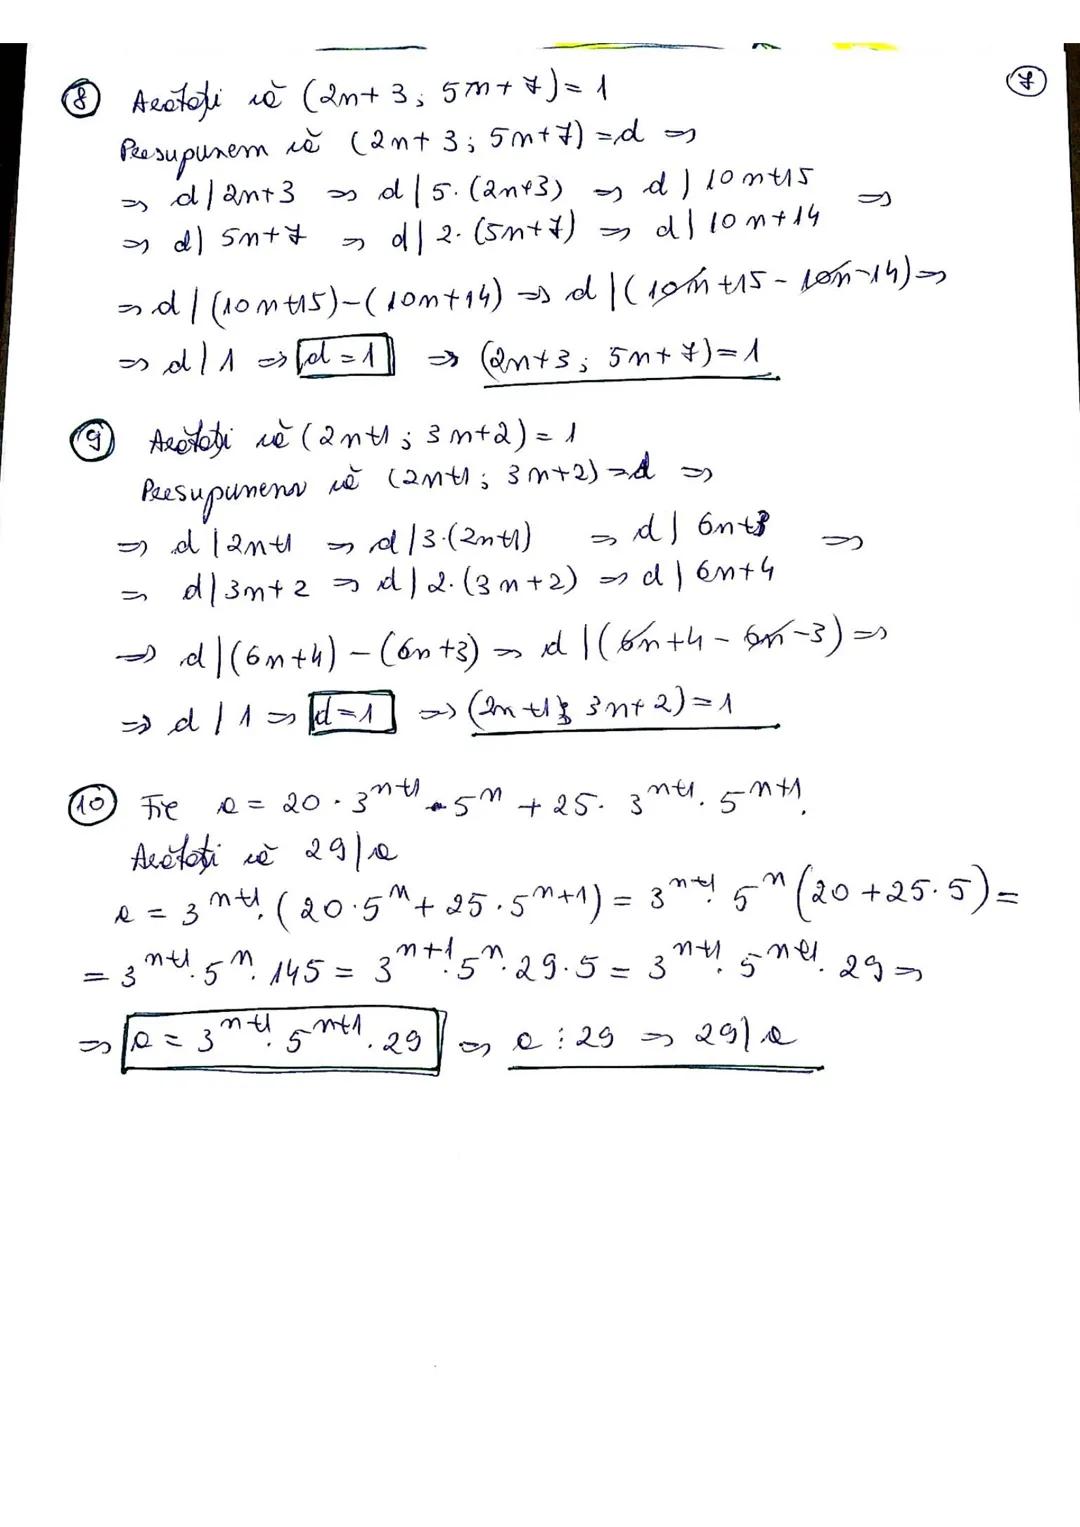 ⑦
⑧ Arătați că (2n+3; 5n+7)=1
Presupunem că (2n+3; 5n+7)=d ⇒
⇒ d|2n+3 ⇒ d|5·(2n+3) ⇒ d|10n+15 ⇒
⇒ d|5n+7 ⇒ d|2·(5n+7) ⇒ d|10n+14
⇒ d|(10n+15)-(10n+14) ⇒ d|(10n+15-10n-14) ⇒
⇒ d|1 ⇒ d=1 ⇒ (2n+3; 5n+7)=1
⑨ Arătați că (2n+1; 3n+2)=1
Presupunem că (2n+1; 3n+2)=d ⇒
⇒ d|2n+1 ⇒ d|3·(2n+1) ⇒ d|6n+3 ⇒
= d|3n+2 ⇒ d|2·(3n+2) ⇒ d|6n+4
⇒ d|(6n+4)-(6n+3) ⇒ d|(6n+4-6n-3) ⇒
⇒ d|1 ⇒ d=1 ⇒ (2n+1; 3n+2)=1
⑩ Fie a = 20·3^{n+1}·5^n + 25·3^{n+1}·5^{n+1}.
Arătați că 29|a
a = 3^{n+1}·(20·5^n+25·5^{n+1}) = 3^{n+1}·5^n(20+25·5) =
= 3^{n+1}·5^n·145 = 3^{n+1}·5^n·29·5 = 3^{n+1}·5^{n+1}·29 ⇒
⇒ a = 3^{n+1}·5^{n+1}·29 ⇒ a⋮29 ⇒ 29|a